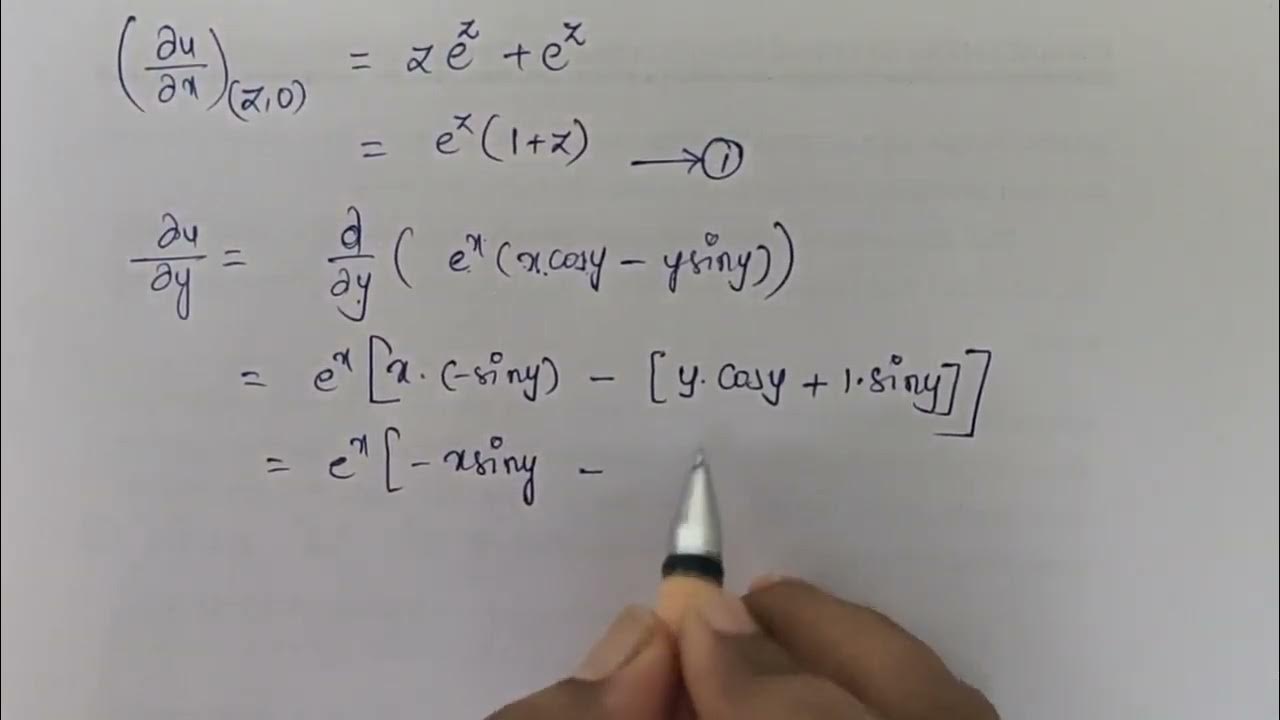 (∂u/∂x)(z,0) = z e^z + e^z
= e^z (1+z) → ①
∂u/∂y = ∂/∂y ( e^x (x.cosy − ysiny))
= e^x [x. (−siny) − [y. cosy + 1.siny]]
= e^x [− xsiny −